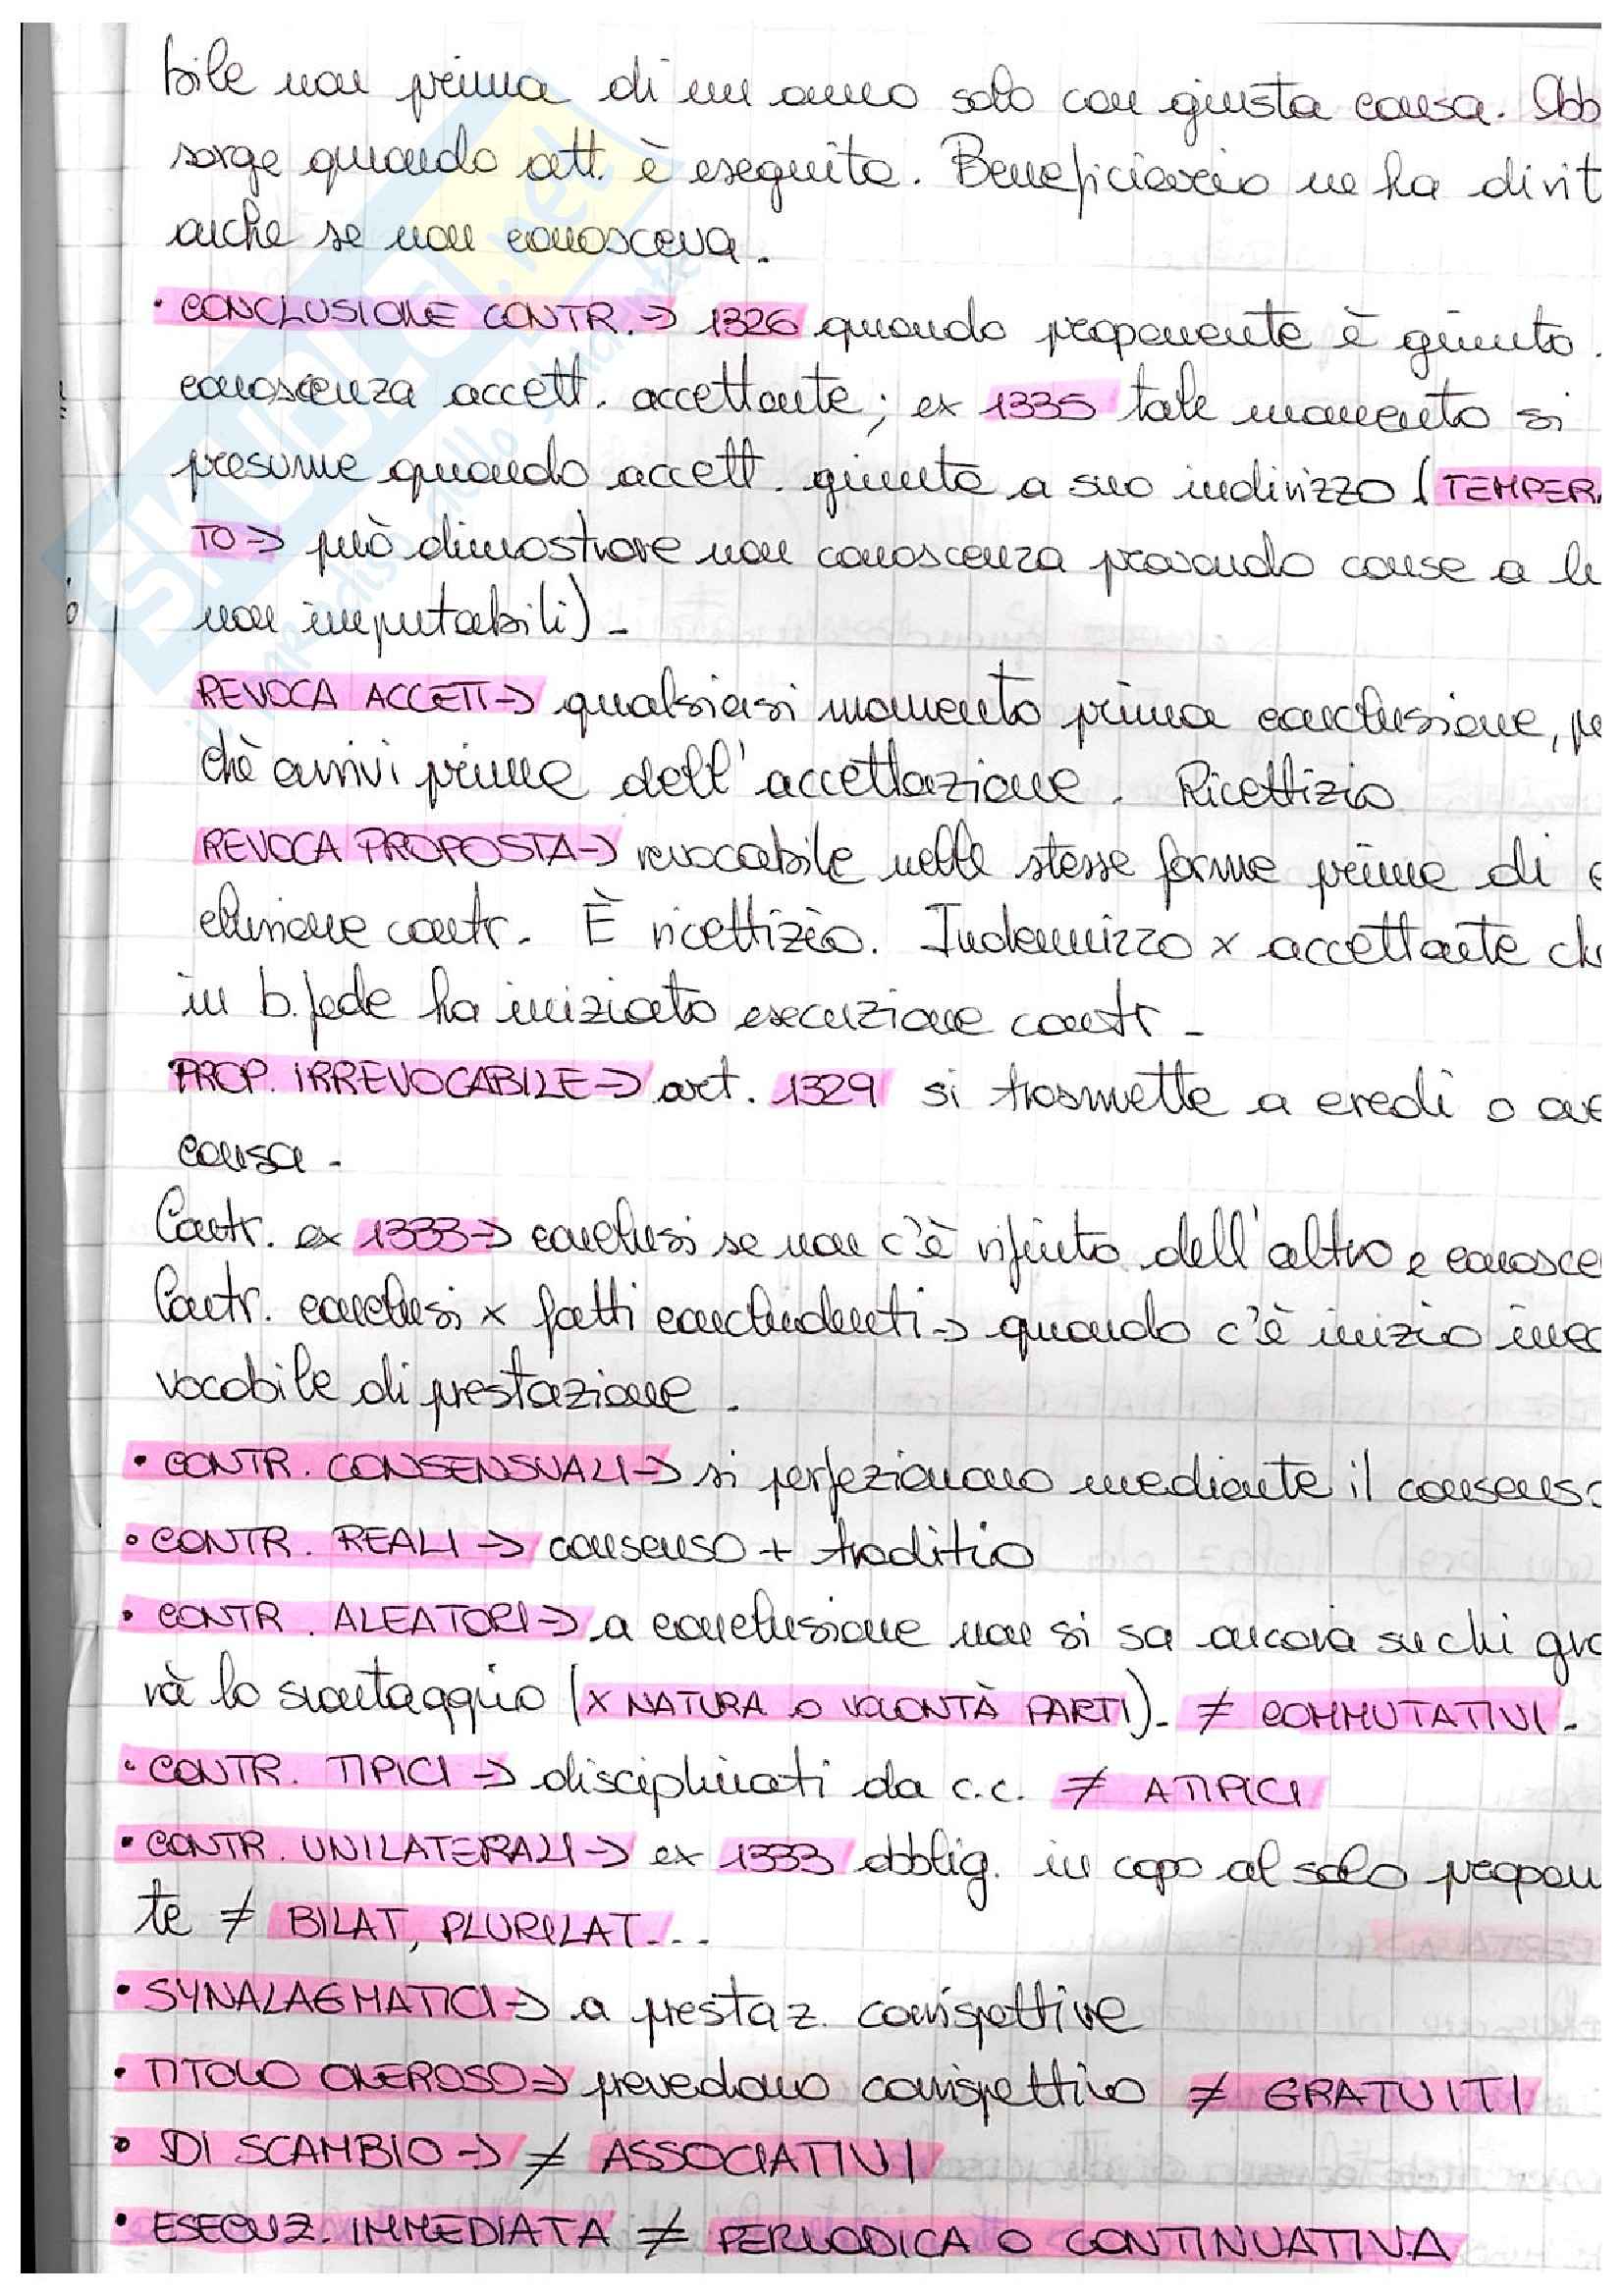 bile non prima di un anno solo con giusta causa. Obb
sorge quando att. è eseguita. Beneficiario ne ha dirit
anche se non conosceva.
• CONCLUSIONE CONTR. → 1326 quando proponente è giunto
conoscenza accett. accettante; ex 1335 tale momento si
presume quando accett. giunta a suo indirizzo (TEMPER.
TO → può dimostrare non conoscenza provando cause a lu
non imputabili).
REVOCA ACCETT → qualsiasi momento prima conclusione, pe
chè arrivi prima dell'accettazione. Ricettizia
REVOCA PROPOSTA → revocabile nelle stesse forme prima di c
clusione contr. È ricettizia. Indennizzo x accettante ch
in b. fede ha iniziato esecuzione contr.
PROP. IRREVOCABILE → art. 1329 si trasmette a eredi o ave
causa.
Contr. ex 1333 → conclusi se non c'è rifiuto dell'altro e conosce
Contr. conclusi x fatti concludenti → quando c'è inizio ineq
vocabile di prestazione.
• CONTR. CONSENSUALI → si perfezionano mediante il consenso
• CONTR. REALI → consenso + traditio
• CONTR. ALEATORI → a conclusione non si sa ancora su chi gra
rà lo svantaggio (x NATURA O VOLONTÀ PARTI). ≠ COMMUTATIVI.
• CONTR. TIPICI → disciplinati da c.c. ≠ ATIPICI
• CONTR. UNILATERALI → ex 1333 obblig. in capo al solo propon
te ≠ BILAT, PLURILAT...
• SYNALAGMATICI → a prestaz. corrispettive
• TITOLO ONEROSO → prevedono corrispettivo ≠ GRATUITI
• DI SCAMBIO → ≠ ASSOCIATIVI
• ESECUZ. IMMEDIATA ≠ PERIODICA O CONTINUATIVA
SKUOLA.net